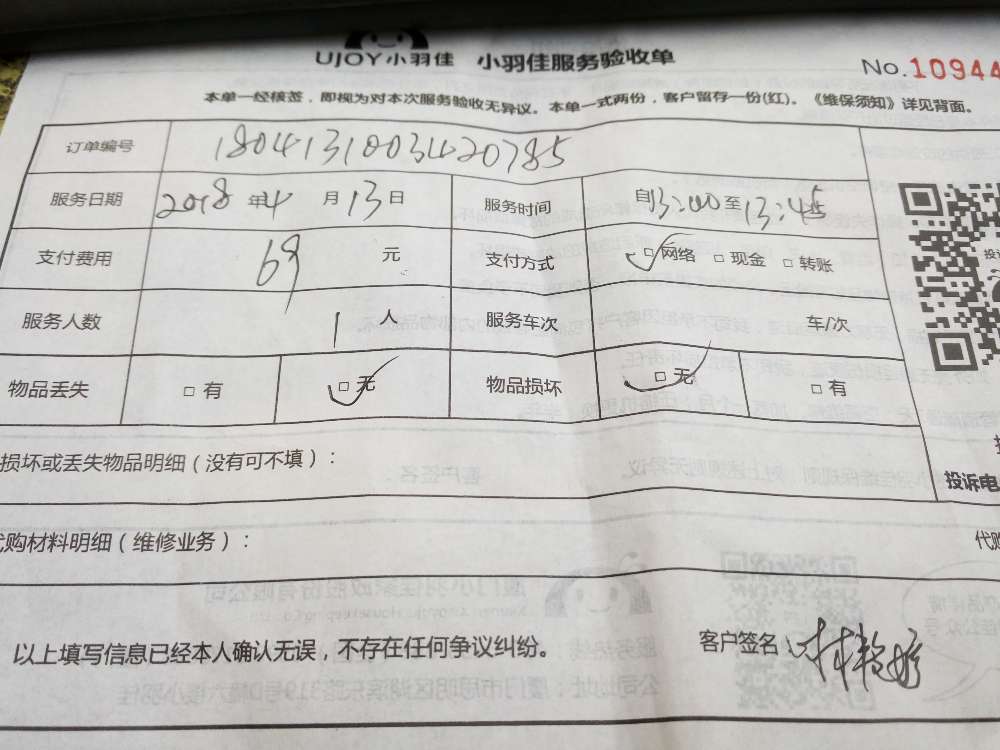 UJOY小羽佳 小羽佳服务验收单
No.10944
本单一经核签，即视为对本次服务验收无异议。本单一式两份，客户留存一份(红)。《维保须知》详见背面。
订单编号 18041310034420785
服务日期 2018年4月13日 服务时间 自13:00至13:45
支付费用 69元 支付方式 □网络 □现金 □转账
服务人数 1人 服务车次 车/次
物品丢失 □有 □无 物品损坏 □无 □有
损坏或丢失物品明细（没有可不填）：
投诉电
购材料明细（维修业务）： 代购
以上填写信息已经本人确认无误，不存在任何争议纠纷。 客户签名：